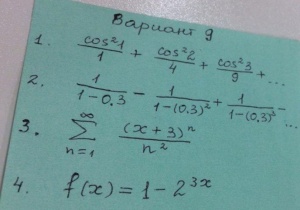 Вариант 9
1. cos²1/1 + cos²2/4 + cos²3/9 + ...
2. 1/(1-0.3) - 1/(1-(0.3)²) + 1/(1-(0.3)³) - ...
3. ∑_{n=1}^{∞} (x+3)ⁿ/n²
4. f(x) = 1 - 2^{3x}